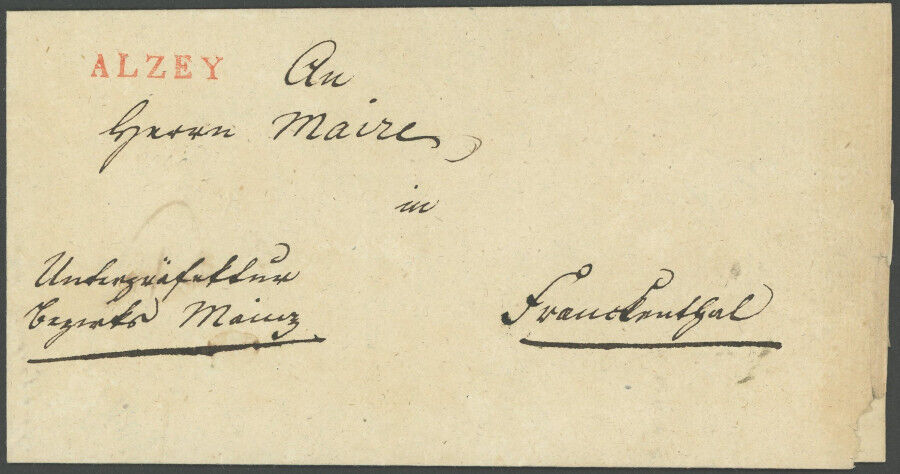 ALZEY
An
Herrn Maire
in
Unterpräfektur
Bezirks Mainz
Franckenthal